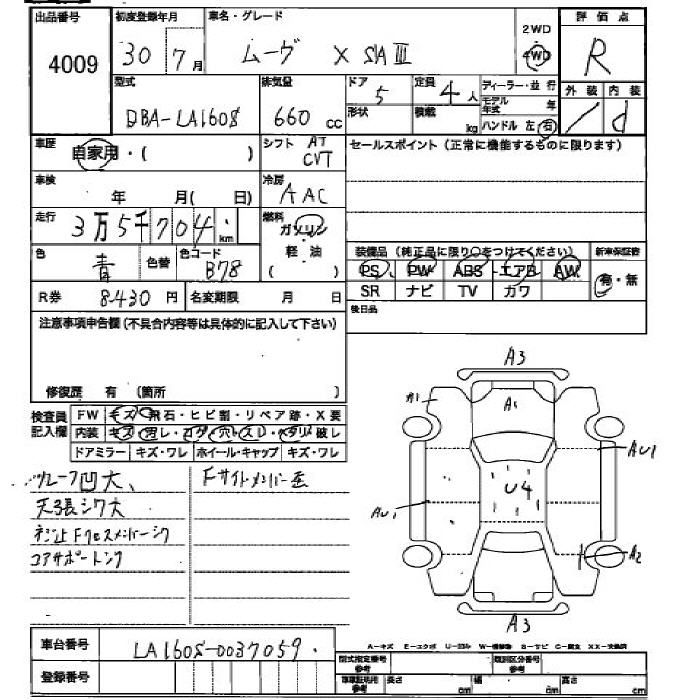 出品番号 初度登録年月 車名・グレード 2WD 評価点
4009 30 7月 ムーヴ X SAⅢ 4WD R
型式 排気量 ドア 定員 ディーラー・並行 外装 内装
DBA-LA160S 660 cc 5 4人 モデル年式 年 d
形状 積載 kg ハンドル 左 右
車歴 自家用・( ) シフト AT CVT セールスポイント(正常に機能するものに限ります)
車検 年 月( 日) 冷房 AAC
走行 3万5千704 km 燃料 ガソリン
軽・油
( )
色 青 色替 色コード B78
装備品(純正品に限り〇をつけてください) 新車保証書
PS PW ABS エアB AW 有・無
SR ナビ TV カワ
R券 8430円 名変期限 月 日
後日品
注意事項申告欄(不具合内容等は具体的に記入して下さい)
修復歴 有 (箇所 )
検査員記入欄 FW キズ・飛石・ヒビ割・リペア跡・X要
内装 キズ・汚レ・コゲ・穴・スレ・ヘタリ・破レ
ドアミラー キズ・ワレ ホイール・キャップ キズ・ワレ
ルーフ凹大、 Fサイドメンバー歪
天張シワ大
ネジ止Fクロスメンバーシワ
コアサポートシワ
A3
A1 A1
AU1
U4
AU1
A2
A3
A-キズ E-エクボ U-凹ミ W-補修跡 S-サビ C-腐食 XX-交換済
車台番号 LA160S-0037059
登録番号
型式指定番号 参考 類別区分番号 参考
車庫証明用 参考 長さ cm 幅 cm 高さ cm